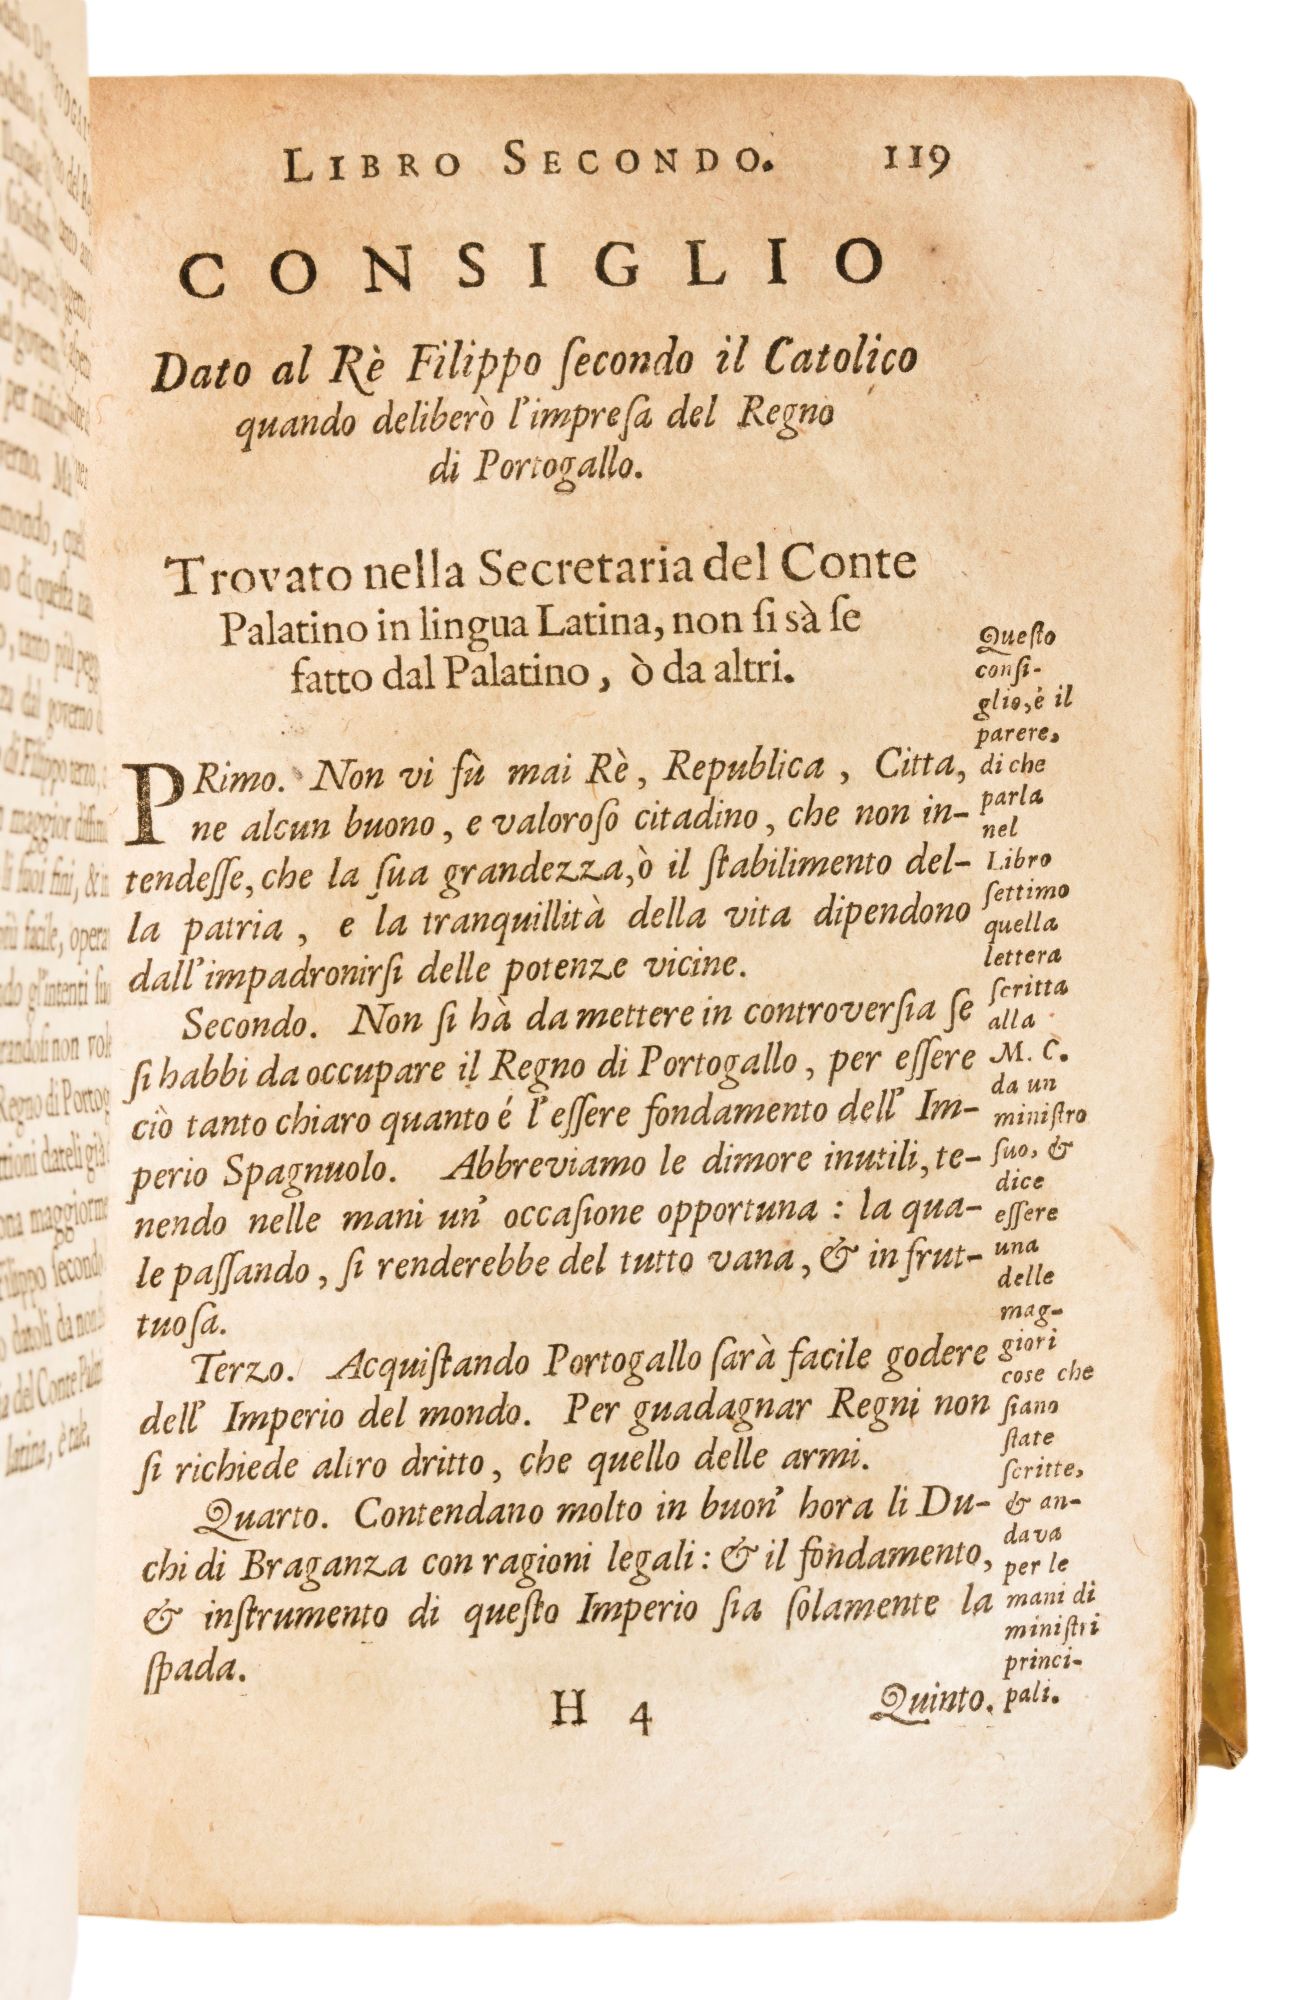 LIBRO SECONDO. 119
CONSIGLIO
Dato al Rè Filippo ſecondo il Catolico
quando deliberò l'impreſa del Regno
di Portogallo.
Trovato nella Secretaria del Conte
Palatino in lingua Latina, non ſi sà ſe
fatto dal Palatino, ò da altri.
PRimo. Non vi fù mai Rè, Republica, Citta,
ne alcun buono, e valoroſo citadino, che non in-
tendeſſe, che la ſua grandezza, ò il ſtabilimento del-
la patria, e la tranquillità della vita dipendono
dall'impadronirſi delle potenze vicine.
Secondo. Non ſi hà da mettere in controverſia ſe
ſi habbi da occupare il Regno di Portogallo, per eſſere
ciò tanto chiaro quanto é l'eſſere fondamento dell' Im-
perio Spagnuolo. Abbreviamo le dimore inutili, te-
nendo nelle mani un' occaſione opportuna: la qua-
le paſſando, ſi renderebbe del tutto vana, & in frut-
tuoſa.
Terzo. Acquiſtando Portogallo ſarà facile godere
dell' Imperio del mondo. Per guadagnar Regni non
ſi richiede altro dritto, che quello delle armi.
Quarto. Contendano molto in buon' hora li Du-
chi di Braganza con ragioni legali: & il fondamento,
& inſtrumento di queſto Imperio ſia ſolamente la
ſpada.
H 4 Quinto.
Queſto
conſi-
glio, è il
parere,
di che
parla
nel
Libro
ſettimo
quella
lettera
ſcritta
alla
M. C.
da un
miniſtro
ſuo, &
dice
eſſere
una
delle
mag-
giori
cose che
ſiano
ſtate
ſcritte,
& an-
dava
per le
mani di
miniſtri
princi-
pali.